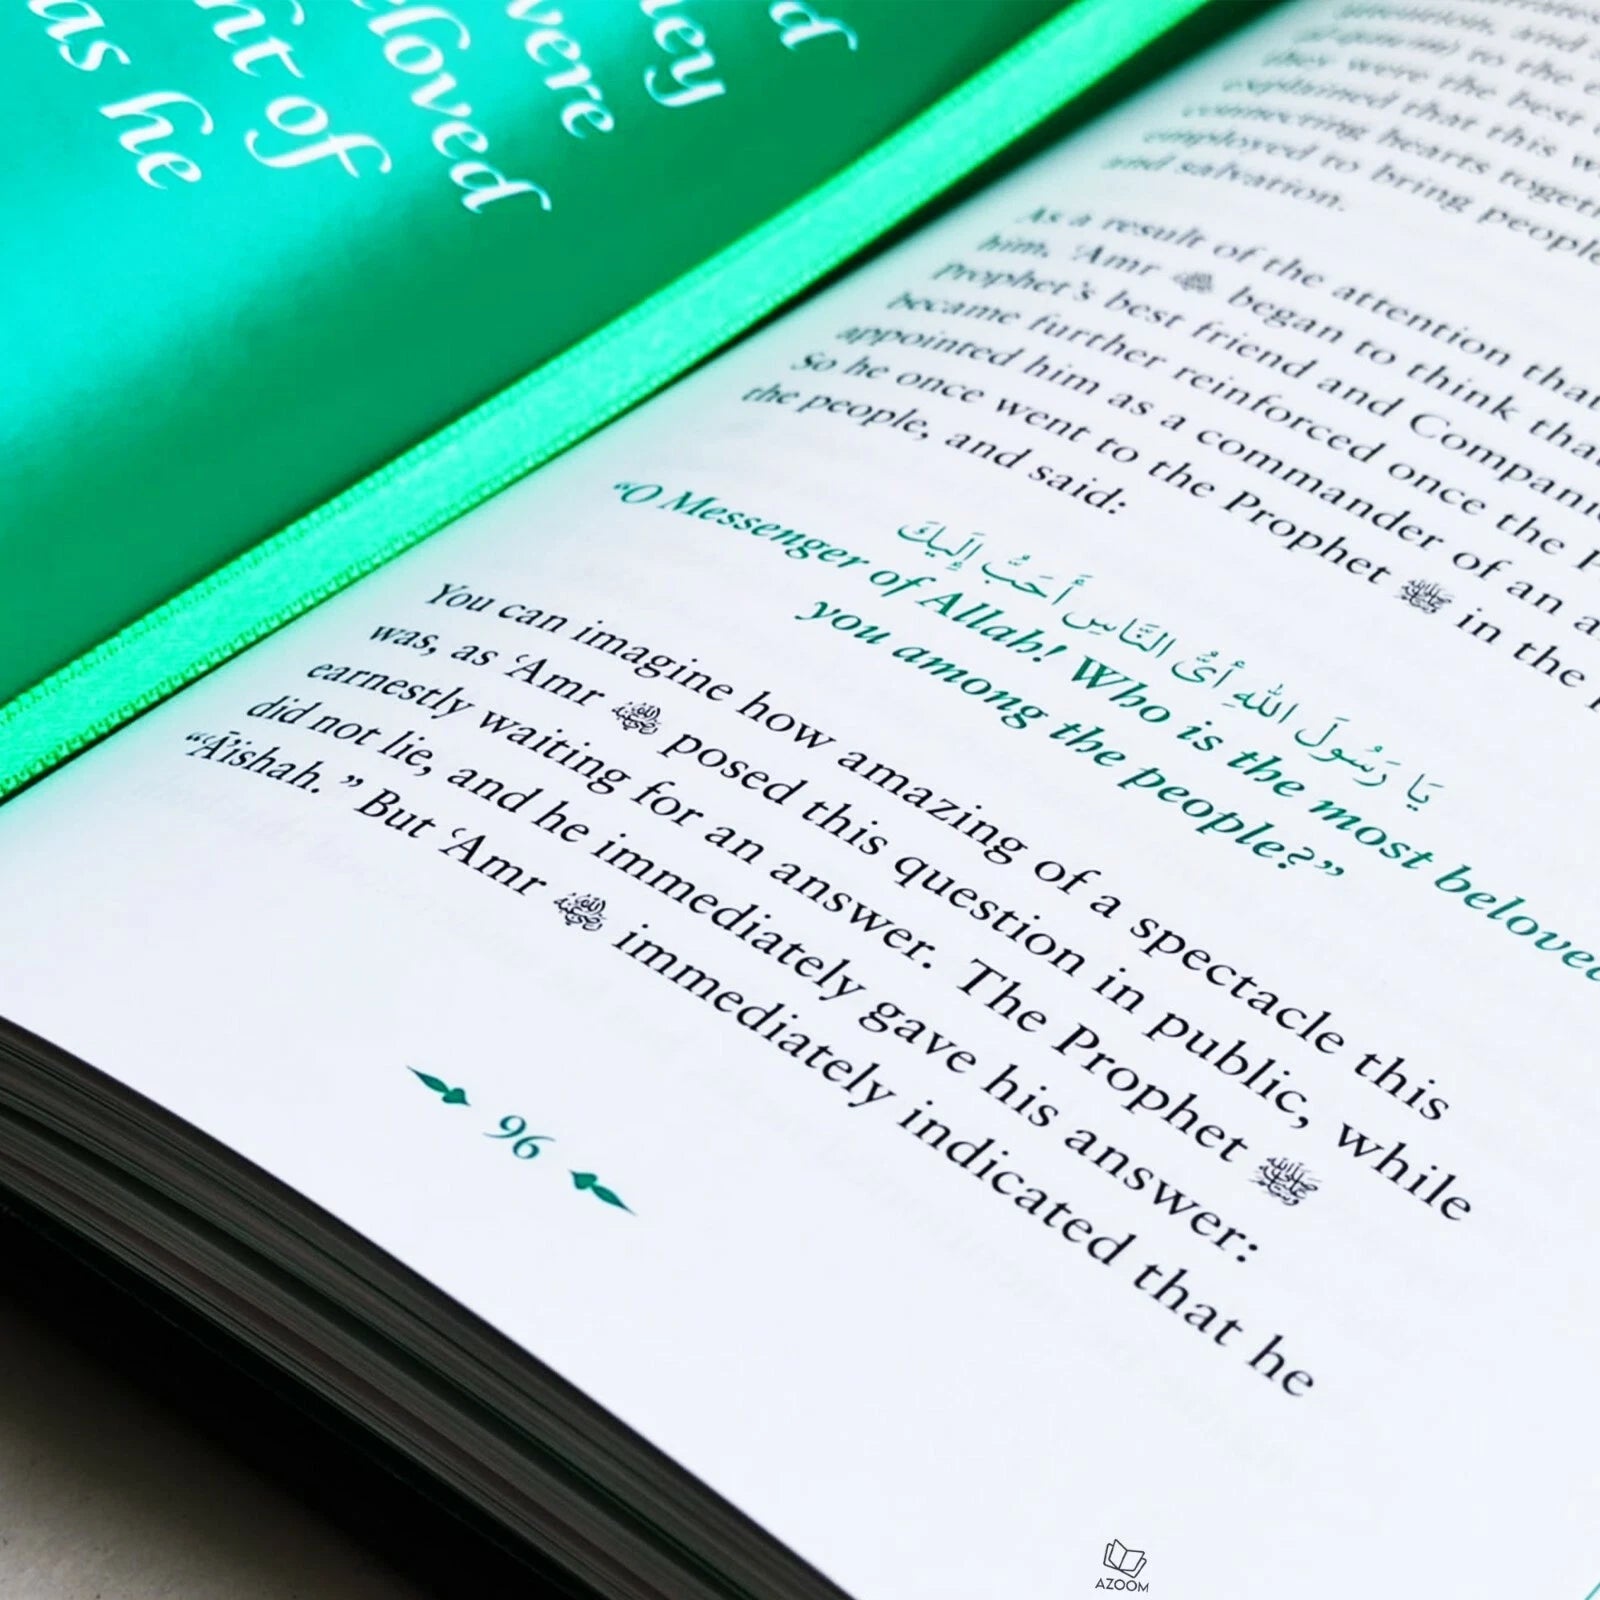 d
ney
were
eloved
nt of
as he
al-qawm) to the
they were the best
explained that this
connecting hearts
employed to bring people
and salvation.
As a result of the attention that
him, ‘Amr رضي الله عنه began to think that
Prophet’s best friend and Compani
became further reinforced once the P
appointed him as a commander of an a
So he once went to the Prophet ﷺ in the
the people, and said:
يَا رَسُولَ اللهِ أَىُّ النَّاسِ أَحَبُّ إِلَيكَ
“O Messenger of Allah! Who is the most beloved
you among the people?”
You can imagine how amazing of a spectacle this
was, as ‘Amr رضي الله عنه posed this question in public, while
earnestly waiting for an answer. The Prophet ﷺ
did not lie, and he immediately gave his answer:
“‘Ā’ishah.” But ‘Amr رضي الله عنه immediately indicated that he
96
AZOOM